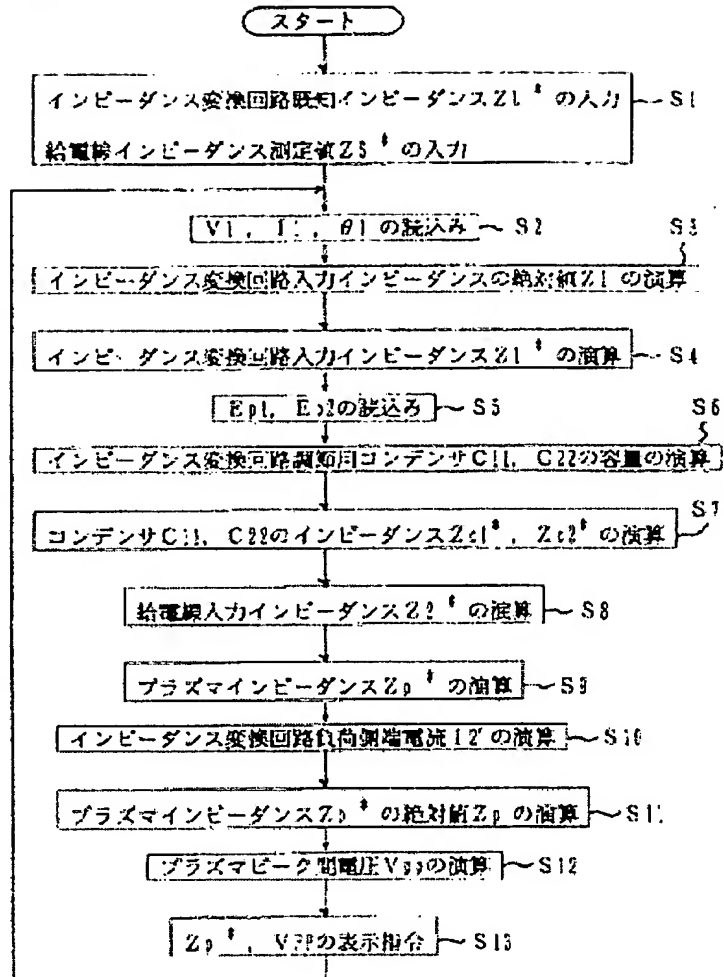 スタート
インピーダンス変換回路既知インピーダンスZ1* の入力 ～S1
給電線インピーダンス測定値Z3* の入力
V1, I1, θ1 の読込み ～S2
S3
インピーダンス変換回路入力インピーダンスの絶対値Z1 の演算
インピーダンス変換回路入力インピーダンスZ1* の演算 ～S4
Ep1, Ep2の読込み ～S5
S6
インピーダンス変換回路調節用コンデンサC11, C22の容量の演算
S7
コンデンサC11, C22のインピーダンスZc1*, Zc2* の演算
給電線入力インピーダンスZ2* の演算 ～S8
プラズマインピーダンスZp* の演算 ～S9
インピーダンス変換回路負荷側端電流I2' の演算 ～S10
プラズマインピーダンスZp* の絶対値Zp の演算 ～S11
プラズマピーク間電圧Vppの演算 ～S12
Zp*, VPPの表示指令 ～S13